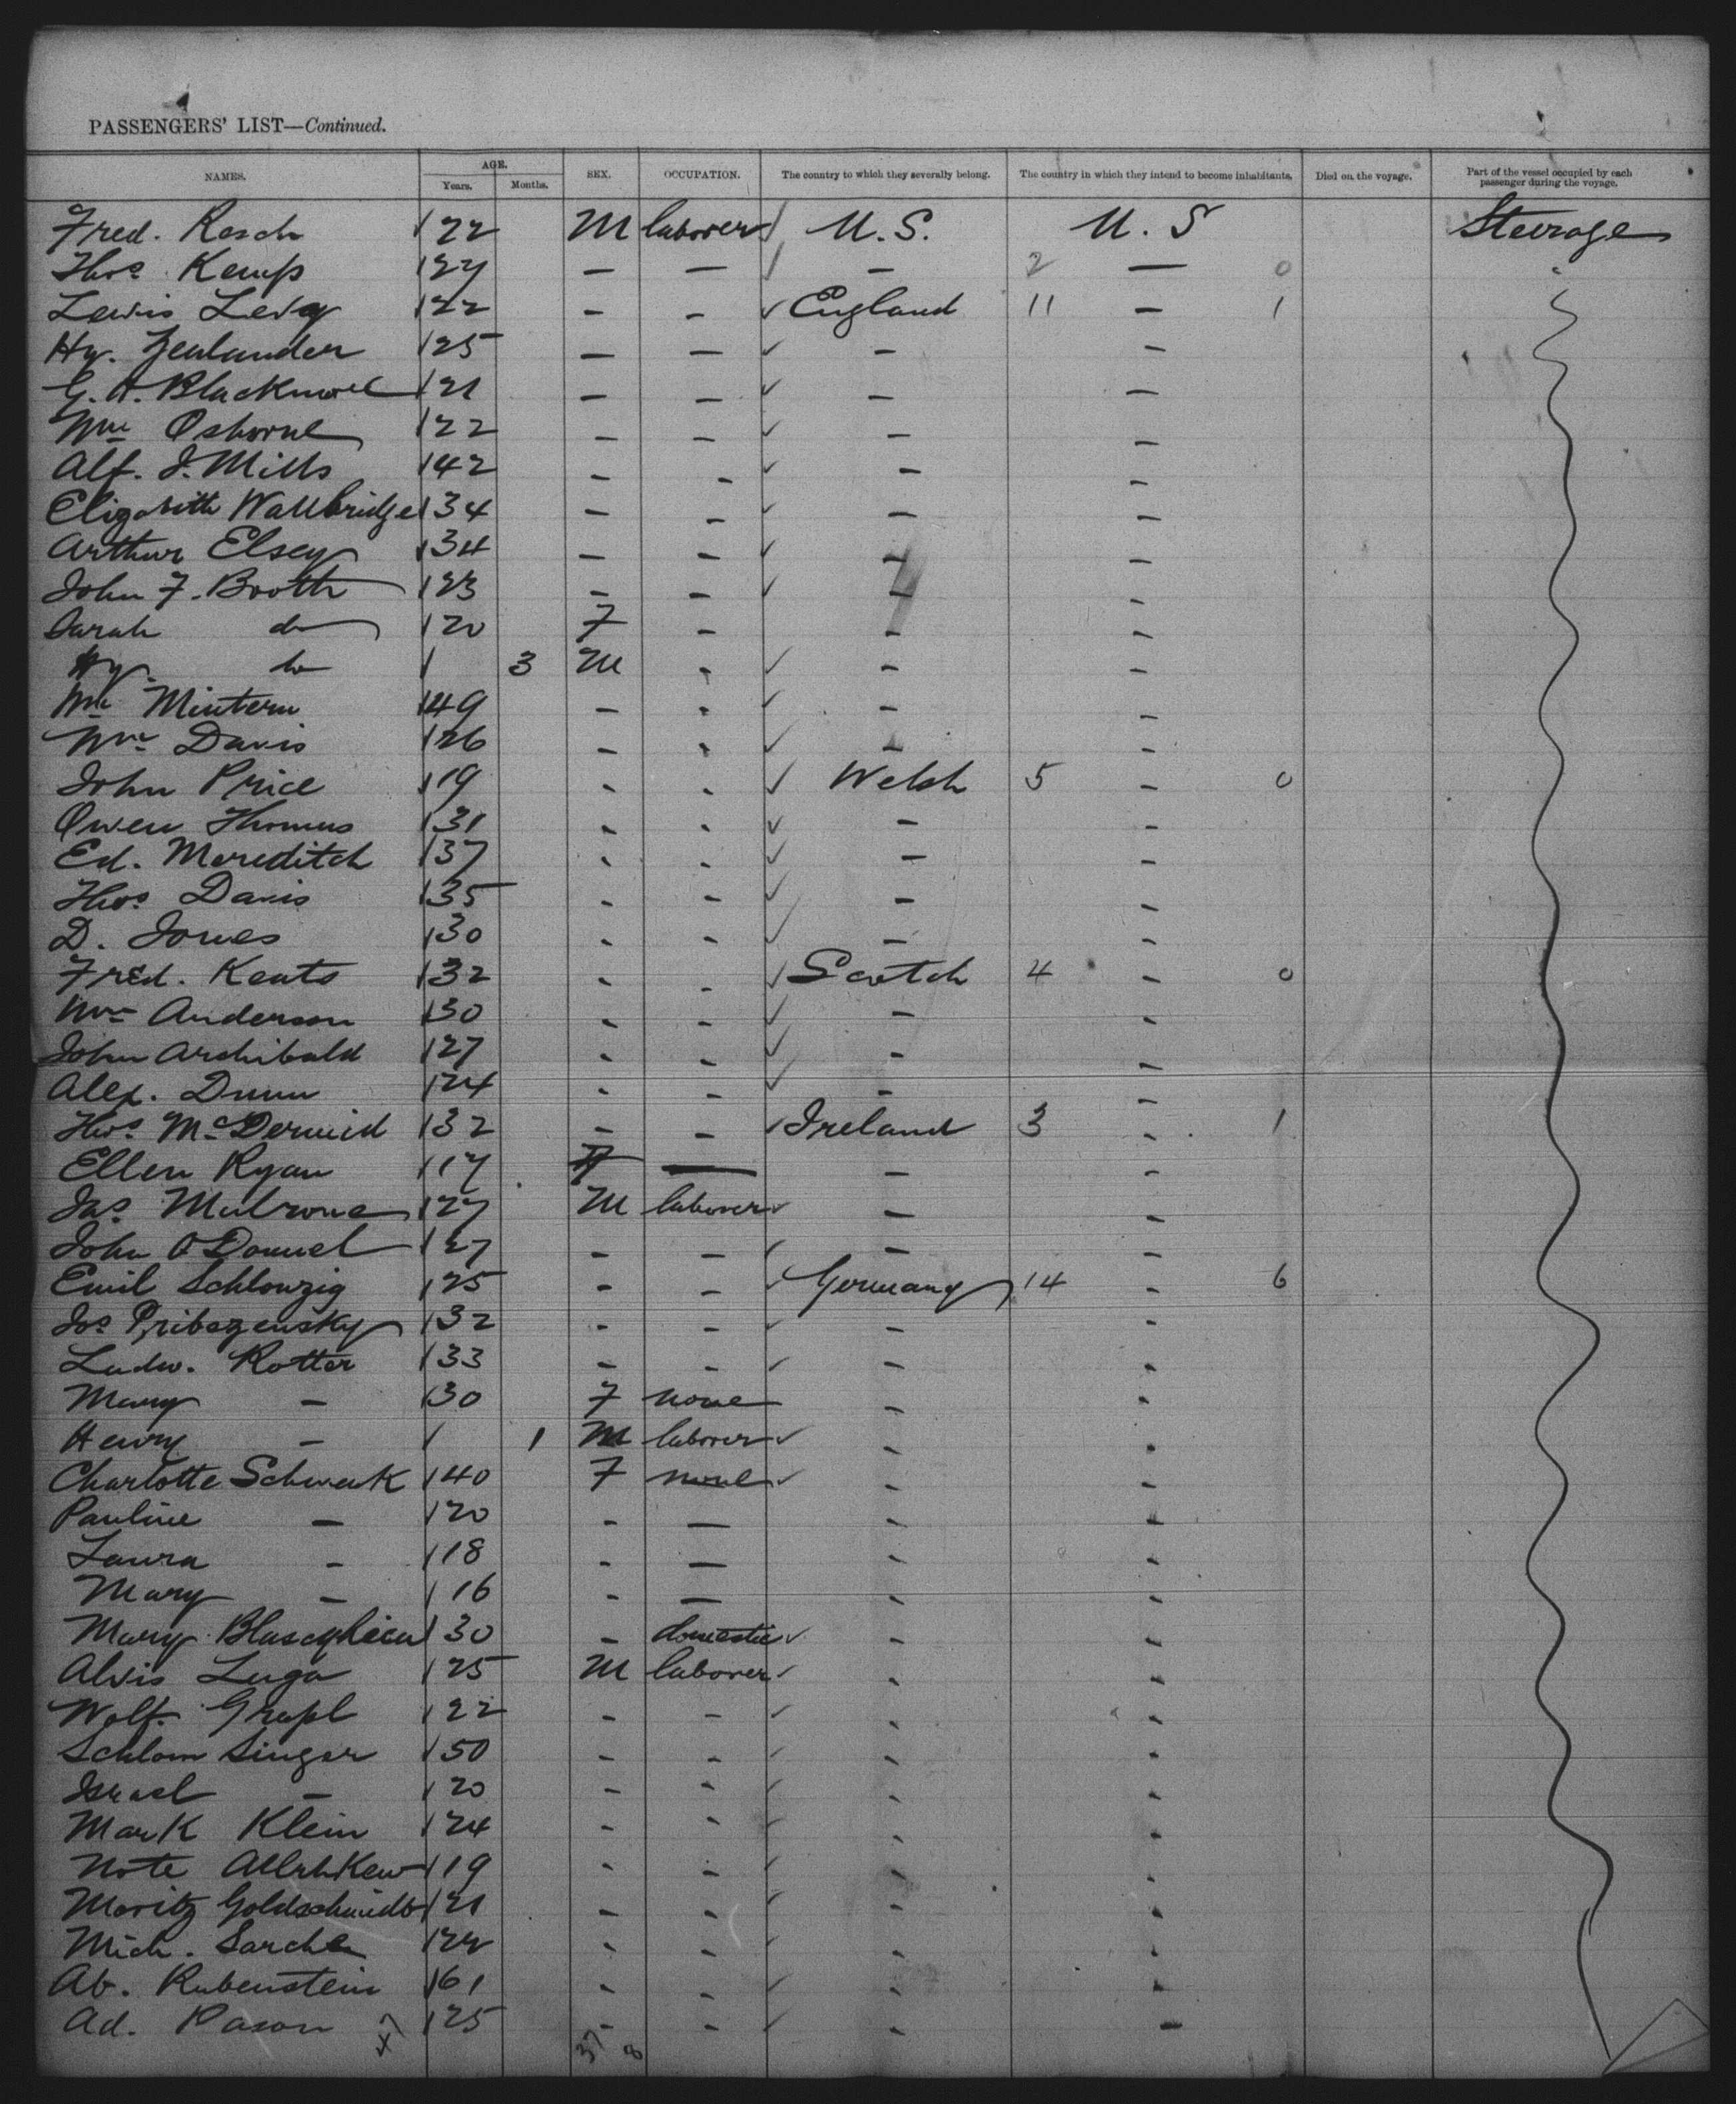 PASSENGERS' LIST—Continued.
NAMES. AGE. Years. Months. SEX. OCCUPATION. The country to which they severally belong. The country in which they intend to become inhabitants. Died on the voyage. Part of the vessel occupied by each passenger during the voyage.
Fred. Rosch 22 M laborer U.S. U.S Steerage
Thos Kemp 27 — — — 2 — 0
Lewis Levy 22 - - England 11 - 1
Hy. Zealander 25 — — - -
G. A. Blackmore 21 — — - —
Wm Osborne 22 - - - -
Alf. J. Mills 42 - - - -
Elizabeth Wallbridge 34 - - - -
Arthur Elsey 34 - - - -
John F. Booth 23 - - - -
Sarah do 20 F - - -
Hy. do 3 M - - -
Wm Mintern 49 - - - -
Wm Davis 26 - - - -
John Price 19 - - Welsh 5 - 0
Owen Thomas 31 - - - -
Ed. Mereditch 37 - - - -
Thos Davis 35 - - - -
D. Jones 30 - - - -
Fred. Keats 32 - - Scotch 4 - 0
Wm Anderson 30 - - - -
John Archibald 27 - - - -
Alex. Dunn 24 - - - -
Thos McDermid 32 - - Ireland 3 - 1
Ellen Ryan 17 F — - -
Jas Mulrone 27 M laborer - -
John O'Donnel 27 - - - -
Emil Schlowzig 25 - - Germany 14 - 6
Jos Pribezensky 32 - - - -
Ludw. Rotter 33 - - - -
Mary - 30 F none - -
Henry - 1 M laborer - -
Charlotte Schwenk 40 F none - -
Pauline - 20 - — - -
Laura - 18 - — - -
Mary - 16 - — - -
Mary 30 - domestic - -
Alvis Luga 25 M laborer - -
Wolf. Grapl 22 - - - -
Schlom Singer 50 - - - -
Israel - 20 - - - -
Mark Klein 24 - - - -
Note 19 - - - -
Moritz Goldschmidt 21 - - - -
Mich. Sarche 22 - - - -
Ab. Rubenstein 61 - - - -
Ad. Pason 25 - - - -
47 37 8